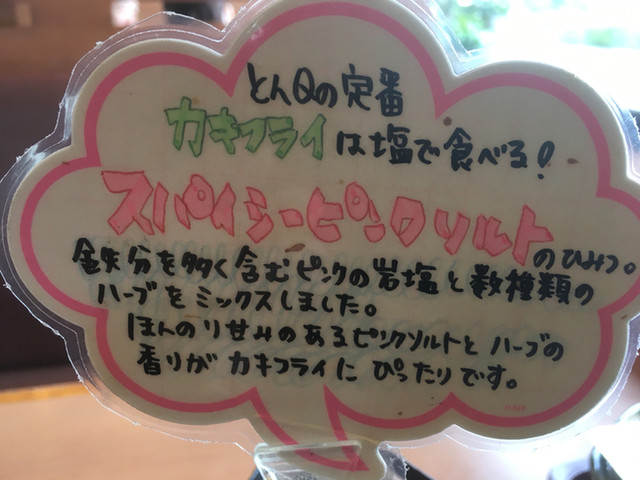 とんQの定番
カキフライは塩で食べる!
スパイシーピンクソルトのひみつ。
鉄分を多く含むピンクの岩塩と数種類の
ハーブをミックスしました。
ほんのり甘みのあるピンクソルトとハーブの
香りがカキフライにぴったりです。